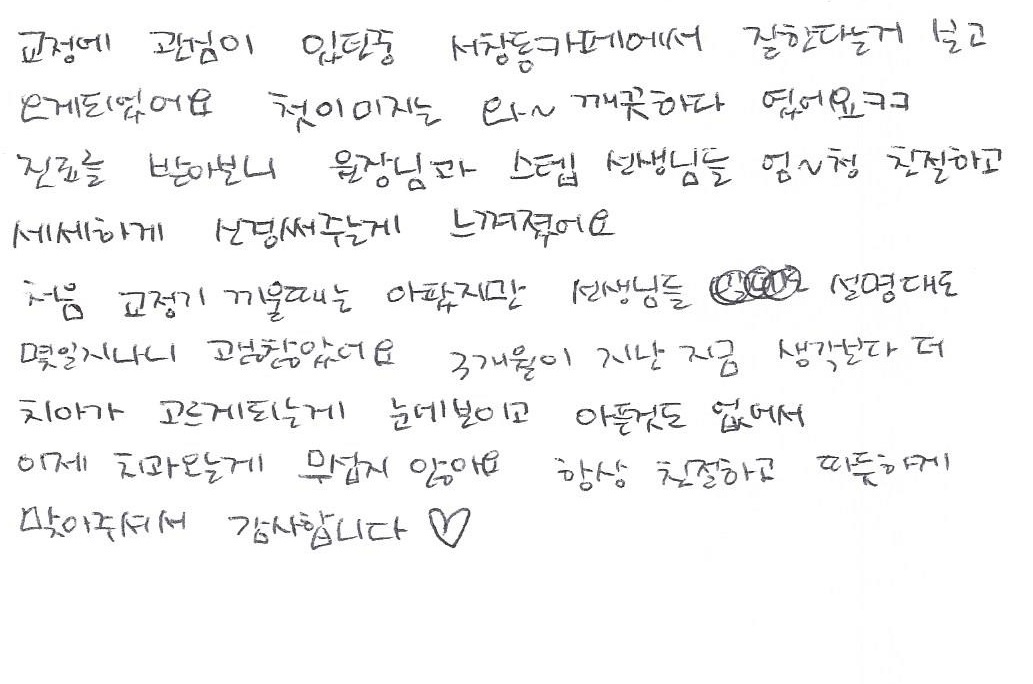 교정에 관심이 있던중 서창동카페에서 잘한다는게 보고
오게되었어요 첫이미지는 와~ 깨끗하다 였어요ㅋㅋ
진료를 받아보니 원장님과 스텝 선생님들 엄~청 친절하고
세세하게 신경써주는게 느껴졌어요
처음 교정기 끼울때는 아팠지만 선생님들 설명대로
몇일지나니 괜찮았어요 3개월이 지난 지금 생각보다 더
치아가 고르게되는게 눈에보이고 아픈것도 없어서
이제 치과오는게 무섭지 않아요 항상 친절하고 따뜻하게
맞아주셔서 감사합니다 ♡